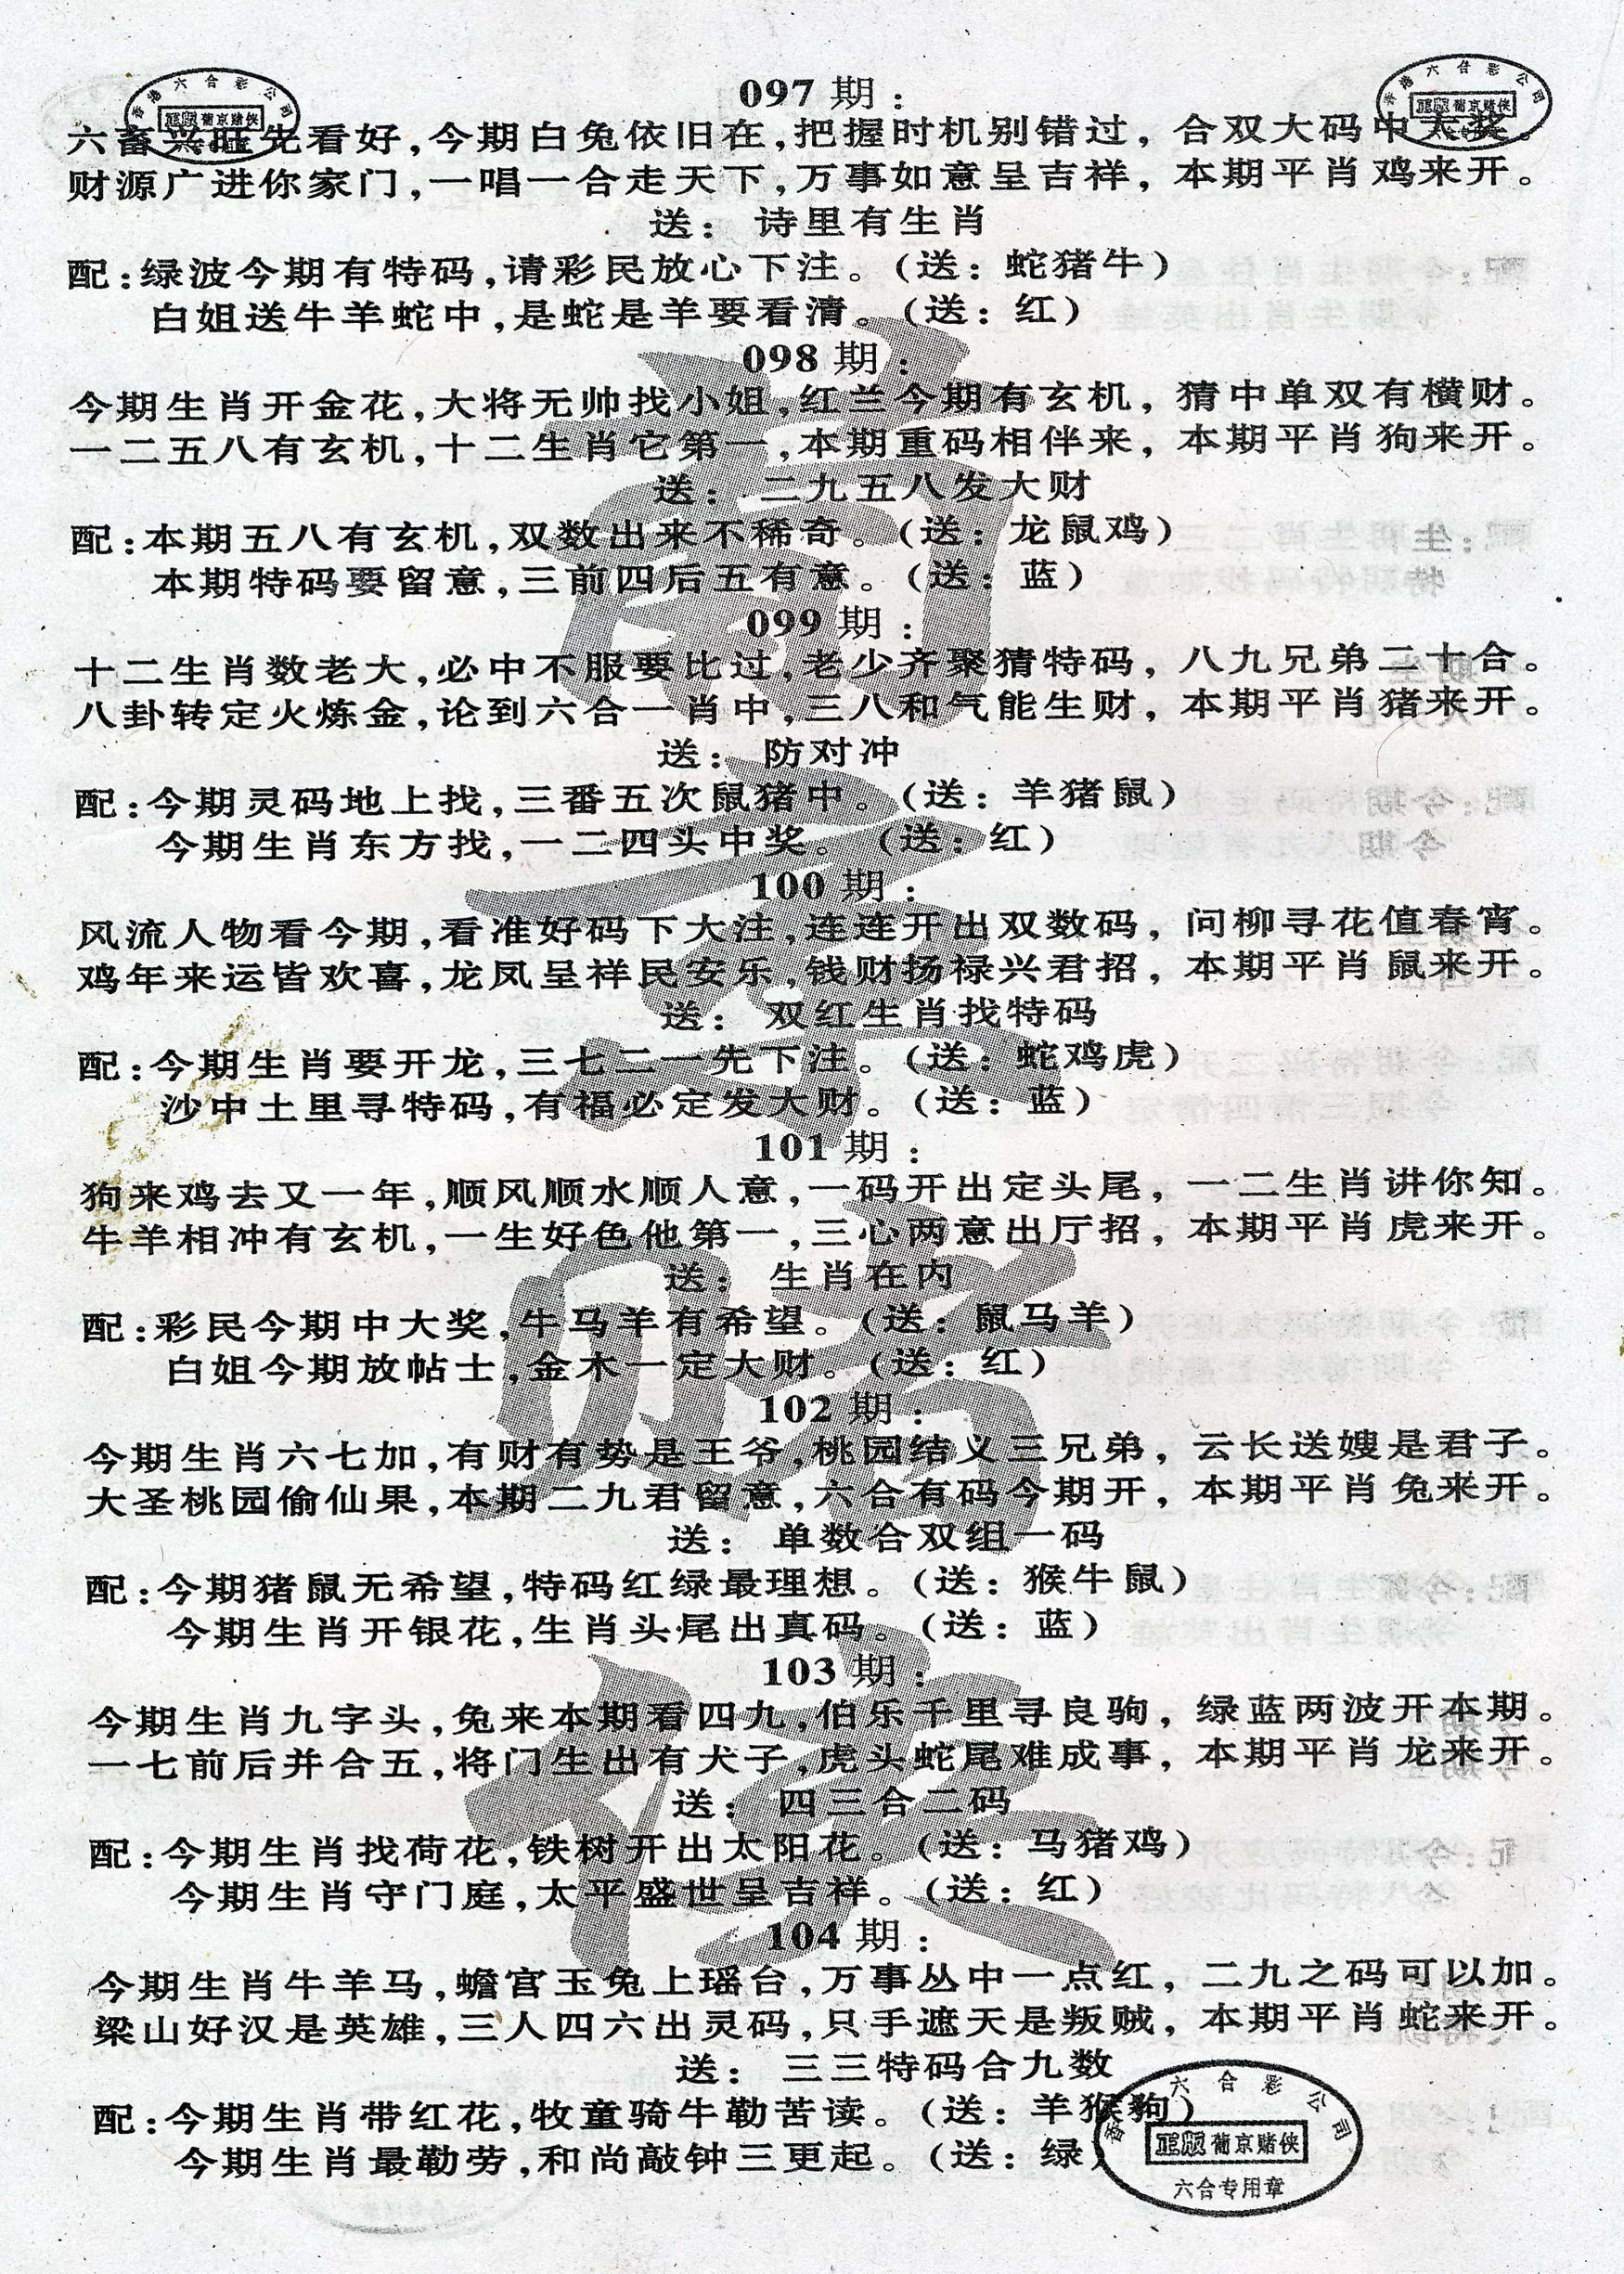 097期：
六畜兴旺先看好，今期白兔依旧在，把握时机别错过，合双大码中大奖。
财源广进你家门，一唱一合走天下，万事如意呈吉祥，本期平肖鸡来开。
送：诗里有生肖
配：绿波今期有特码，请彩民放心下注。（送：蛇猪牛）
白姐送牛羊蛇中，是蛇是羊要看清。（送：红）
098期：
今期生肖开金花，大将无帅找小姐，红兰今期有玄机，猜中单双有横财。
一二五八有玄机，十二生肖它第一，本期重码相伴来，本期平肖狗来开。
送：二九五八发大财
配：本期五八有玄机，双数出来不稀奇。（送：龙鼠鸡）
本期特码要留意，三前四后五有意。（送：蓝）
099期：
十二生肖数老大，必中不服要比过，老少齐聚猜特码，八九兄弟二十合。
八卦转定火炼金，论到六合一肖中，三八和气能生财，本期平肖猪来开。
送：防对冲
配：今期灵码地上找，三番五次鼠猪中。（送：羊猪鼠）
今期生肖东方找，一二四头中奖。（送：红）
100期：
风流人物看今期，看准好码下大注，连连开出双数码，问柳寻花值春宵。
鸡年来运皆欢喜，龙凤呈祥民安乐，钱财扬禄兴君招，本期平肖鼠来开。
送：双红生肖找特码
配：今期生肖要开龙，三七二一先下注。（送：蛇鸡虎）
沙中土里寻特码，有福必定发大财。（送：蓝）
101期：
狗来鸡去又一年，顺风顺水顺人意，一码开出定头尾，一二生肖讲你知。
牛羊相冲有玄机，一生好色他第一，三心两意出厅招，本期平肖虎来开。
送：生肖在内
配：彩民今期中大奖，牛马羊有希望。（送：鼠马羊）
白姐今期放帖士，金木一定大财。（送：红）
102期：
今期生肖六七加，有财有势是王爷，桃园结义三兄弟，云长送嫂是君子。
大圣桃园偷仙果，本期二九君留意，六合有码今期开，本期平肖兔来开。
送：单数合双组一码
配：今期猪鼠无希望，特码红绿最理想。（送：猴牛鼠）
今期生肖开银花，生肖头尾出真码。（送：蓝）
103期：
今期生肖九字头，兔来本期看四九，伯乐千里寻良驹，绿蓝两波开本期。
一七前后并合五，将门生出有犬子，虎头蛇尾难成事，本期平肖龙来开。
送：四三合二码
配：今期生肖找荷花，铁树开出太阳花。（送：马猪鸡）
今期生肖守门庭，太平盛世呈吉祥。（送：红）
104期：
今期生肖牛羊马，蟾宫玉兔上瑶台，万事丛中一点红，二九之码可以加。
梁山好汉是英雄，三人四六出灵码，只手遮天是叛贼，本期平肖蛇来开。
送：三三特码合九数
配：今期生肖带红花，牧童骑牛勒苦读。（送：羊猴狗）
今期生肖最勒劳，和尚敲钟三更起。（送：绿）
香港六合彩公司
正版葡京赌侠
六合专用章